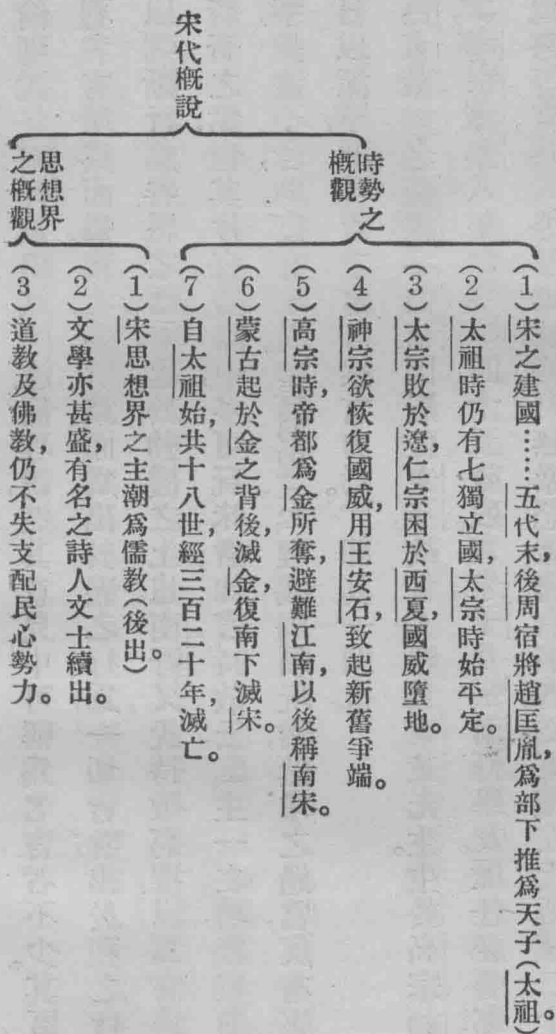 宋代概說
時勢之
概觀
(1)宋之建國……五代末,後周宿將趙匡胤,爲部下推爲天子(太祖)。
(2)太祖時仍有七獨立國,太宗時始平定。
(3)太宗敗於遼,仁宗困於西夏,國威墮地。
(4)神宗欲恢復國威,用王安石,致起新舊爭端。
(5)高宗時,帝都爲金所奪,避難江南,以後稱南宋。
(6)蒙古起於金之背後,滅金,復南下滅宋。
(7)自太祖始,共十八世,經三百二十年,滅亡。
思想界
之概觀
(1)宋思想界之主潮爲儒教(後出)。
(2)文學亦甚盛,有名之詩人文士續出。
(3)道教及佛教,仍不失支配民心勢力。